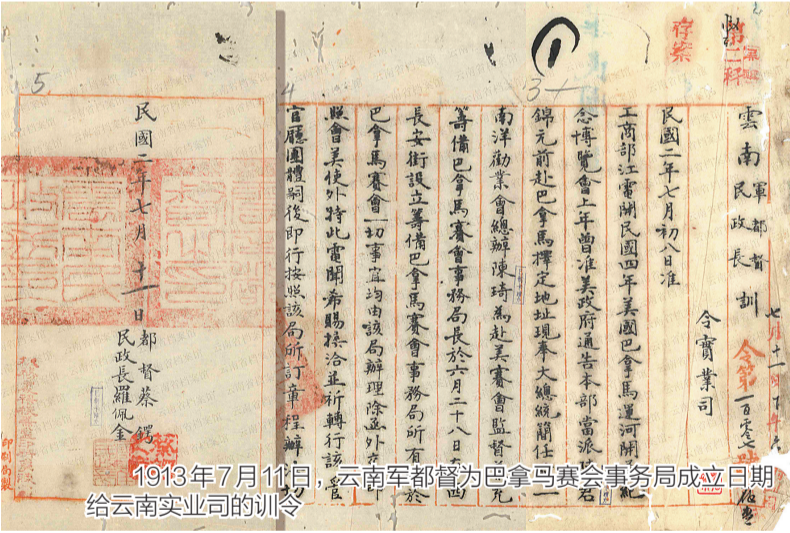 存案
第二科
雲南軍都督民政長訓令第一百零七號
令實業司
民國二年七月初八日准
工商部江電開民國四年美國巴拿馬運河開紀
念博覽會上年曾准美政府通告本部當派君
錦元前赴巴拿馬擇定地址現奉大總統簡任
南洋勸業會總辦陳琪為赴美賽會監督充
籌備巴拿馬賽會事務局長於六月二十八日在西
長安街設立籌備巴拿馬賽會事務局所有於
巴拿馬賽會一切事宜均由該局辦理除函外交即
照會美使外特此電聞希賜接洽並祈轉行該管
官廳團體嗣後即行按照該局所訂章程辦
民國二年七月十一日
都督蔡鍔
民政長羅佩金
3+
4
5
1
1913年7月11日，云南军都督为巴拿马赛会事务局成立日期
给云南实业司的训令